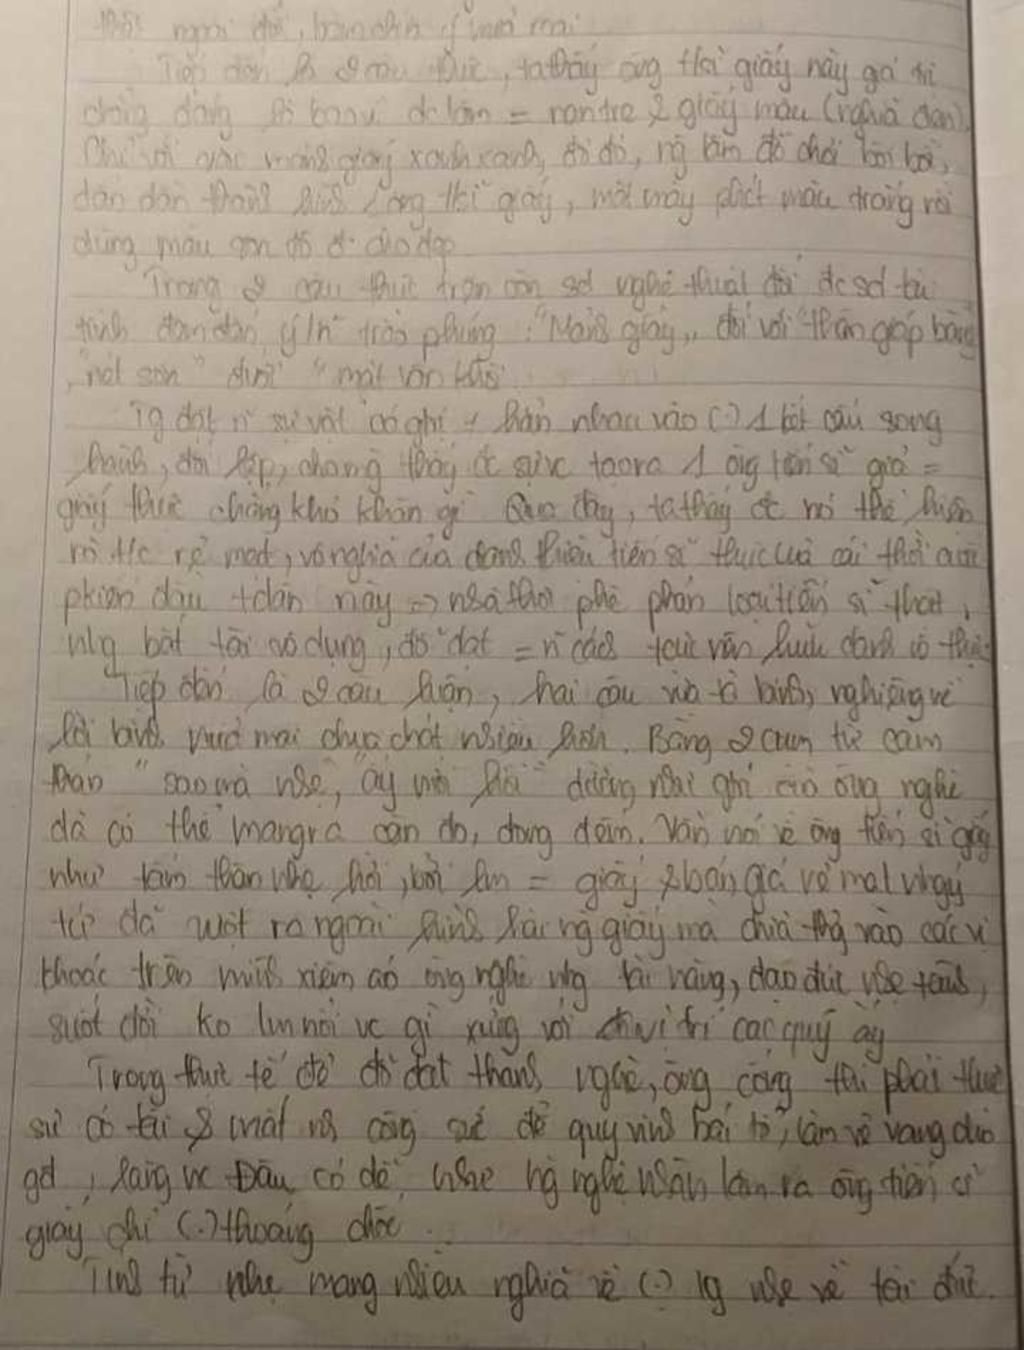 ngoài đời, bản chín ý mỉa mai
Tiếp đến là 2 câu thực, ta thấy ông tiến sĩ giấy này giá trị
chẳng đáng là bao vì đc làm = nan tre & giấy màu (nghĩa đen)
Chỉ với các mảnh giấy xanh xanh, đỏ đỏ, ng làm đồ chơi bôi bôi,
dán dán thành hình ông tiến sĩ giấy, mặt mày phết màu trắng rồi
dùng màu son đỏ cho đẹp
Trong 2 câu thực trên còn sd nghệ thuật đối đc sd tài
tình đan dán ý trào phúng: "Mảnh giấy" đối với "thân giáp bảng
"nét son" đối "mặt văn khôi"
Tg đặt n~ sự vật có ghí hẳn nhau vào (.) 1 kết cấu song
hành, đối lập, chẳng thấy đc sự tạo ra 1 ông tiến sĩ giả =
giấy thực chẳng khó khăn gì Qua đây, ta thấy đc nó thể hiện
rõ t/c rẻ mạt, vô nghĩa của danh hiệu tiến sĩ thực của cái thời cuộc
pkiến đầu tdân này => nhà thơ phê phán loại tiến sĩ thật,
nhg bất tài vô dụng, đỗ đạt = n~ cách hữu danh vô thực
Tiếp đến là 2 câu luận, hai câu vừa tả bình, nghiêng về
lời bình mỉa mai chua chát nhiều hơn. Bằng 2 cụm từ cảm
thán "sao mà nhẹ", "ấy mới hời" dường như ghí ông nghè
đã có thể mang ra cân đo, đong đếm. Vẫn nói về ông tiến sĩ giấy
như tấm thân nhẹ hời, bởi lm = giấy & bán giá rẻ mạt nhg ý
tứ đã vượt ra ngoài hình hài ng giấy mà chĩa thg vào các vị
khoác trên mình xiêm áo ông nghè nhg tài năng, đạo đức nhẹ tênh,
suốt đời ko lm nổi vc gì xứng với vị trí cao quý ấy
Trong thực tế để đỗ đạt thành nghè, ông cống thì phải thực
sự có tài & mất nh công sức để quy vinh bái tổ, làm vẻ vang cho
gđ, làng nc Đâu có dễ như ng nghệ nhân làm ra ông tiến sĩ
giấy chỉ (.) thoáng chốc.
Tính từ nhẹ mang nhiều nghĩa về (.) lg nhẹ về tài đức.